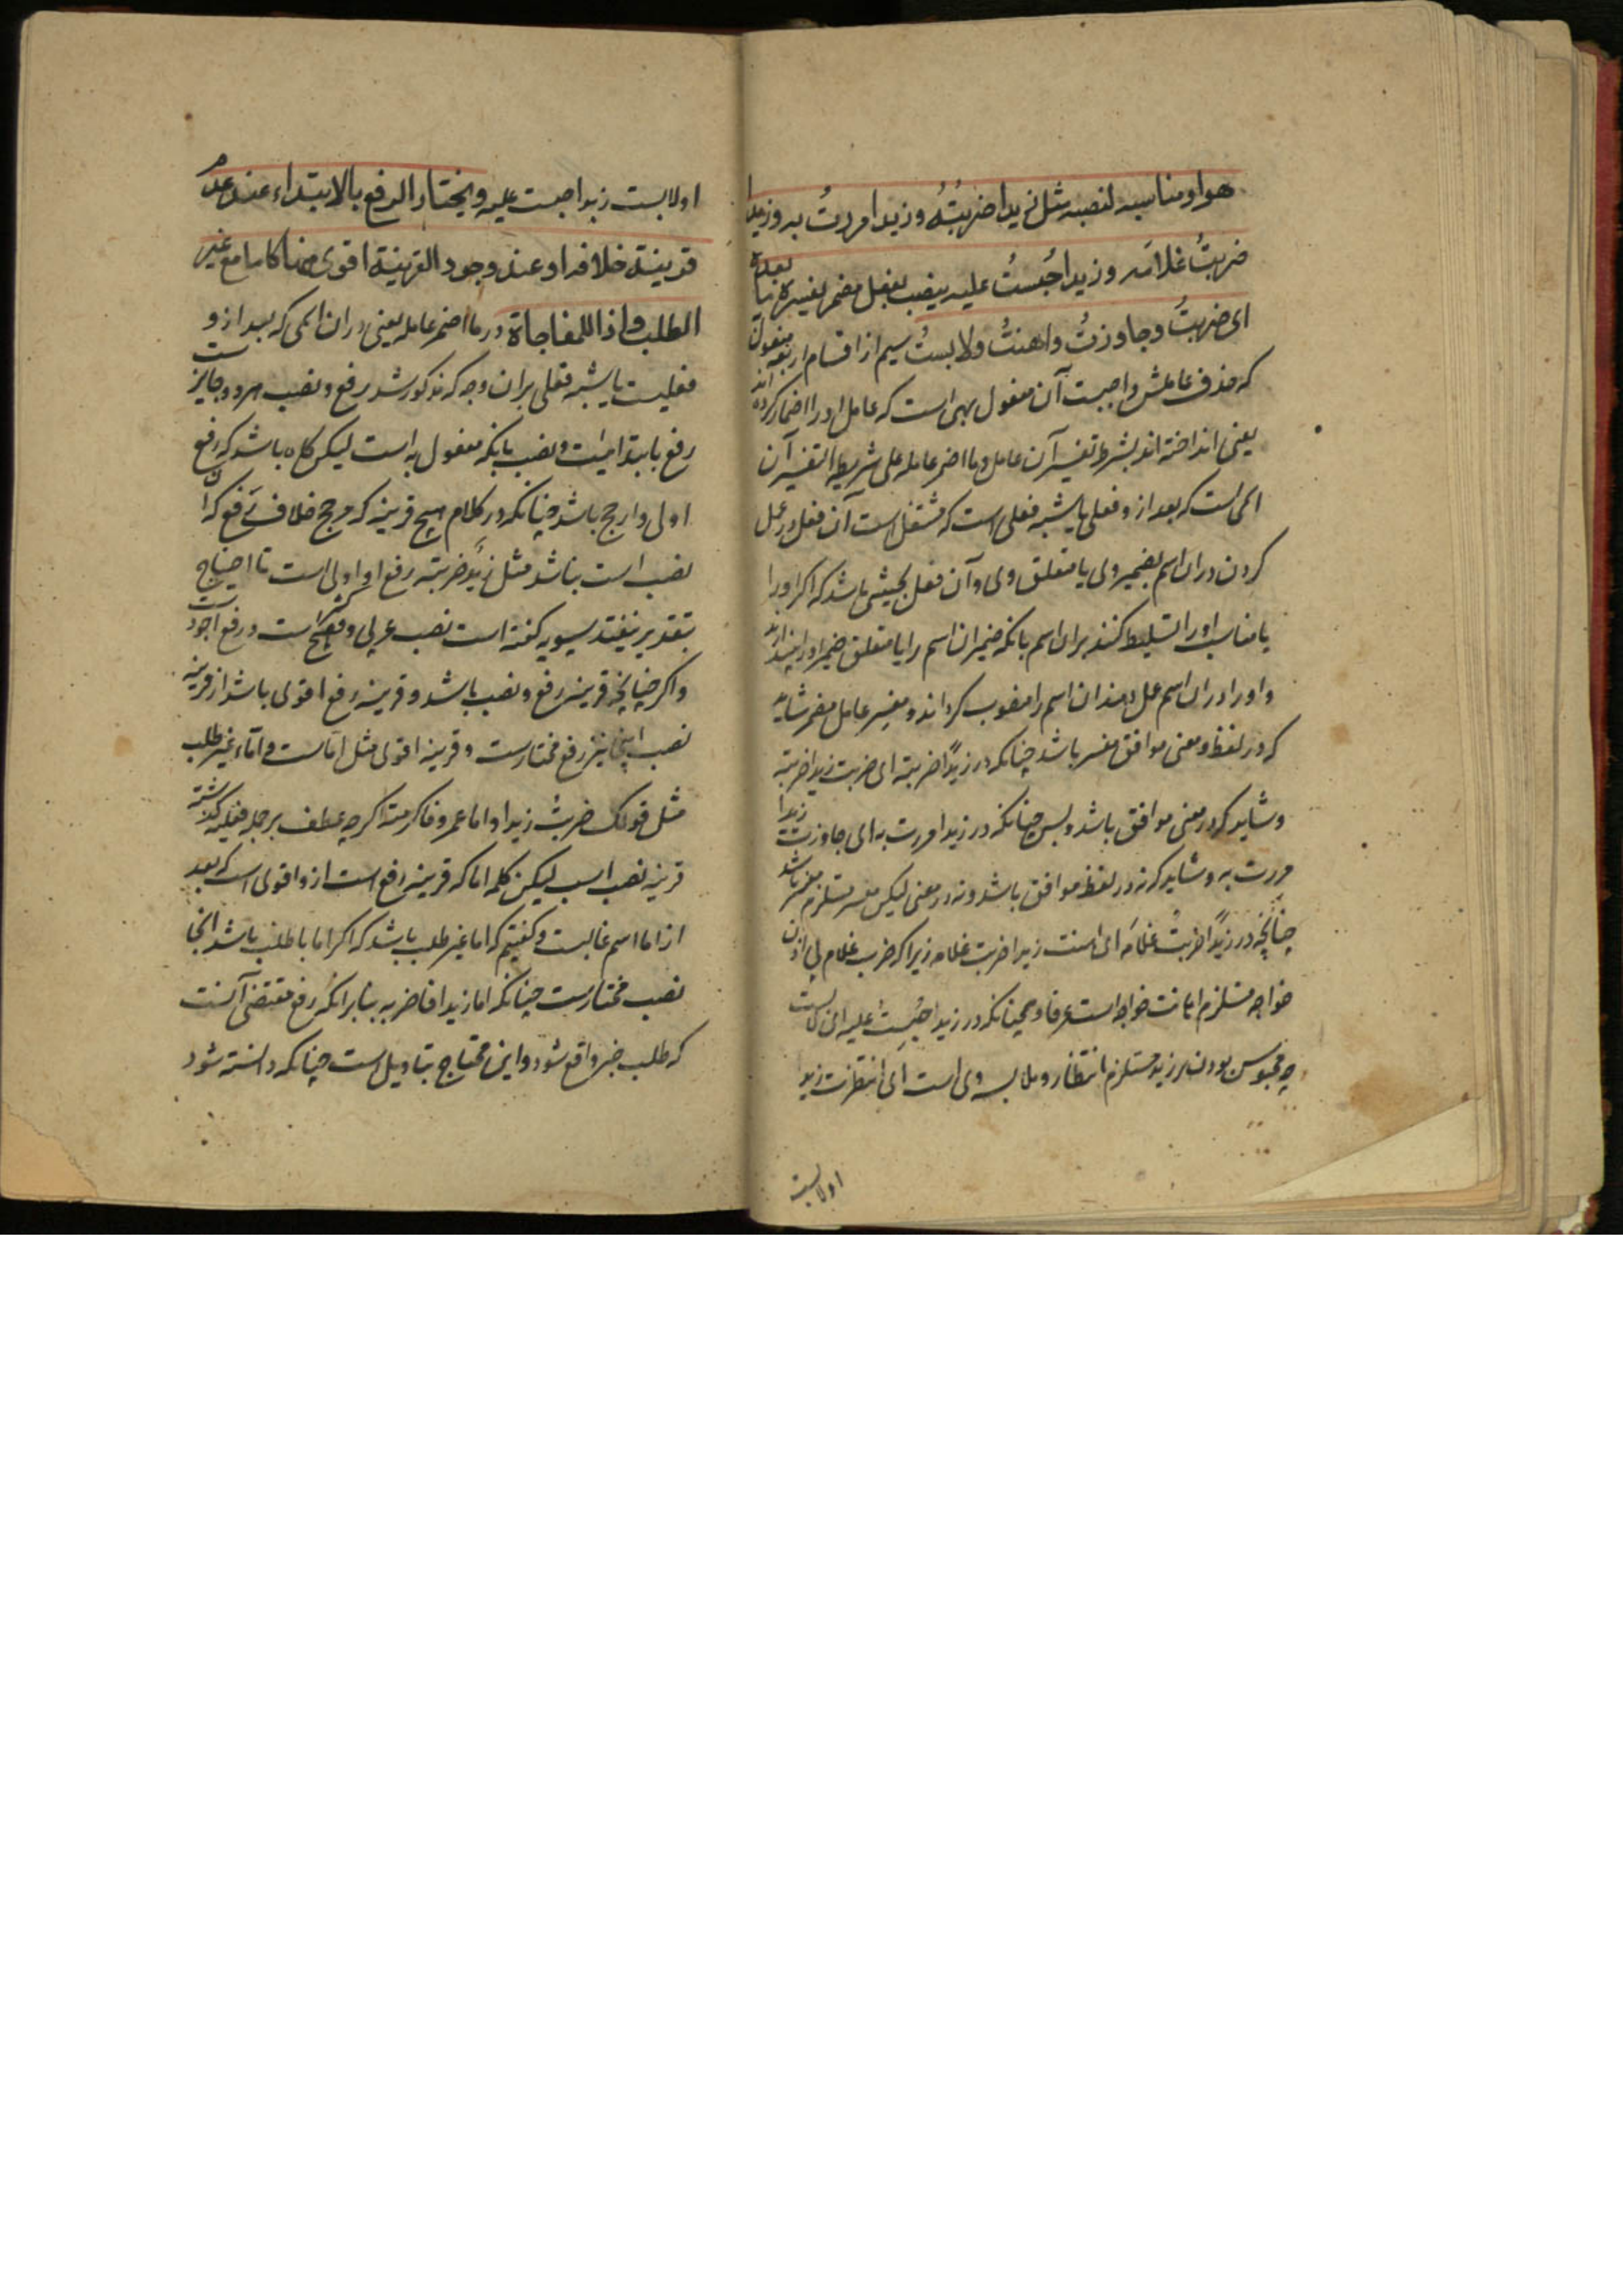 هو او مناسبه لنصبه مثل زیدا ضربتُهُ و زیدا مررتُ به و زیدا
ضربتُ غلامَه و زیدا حُبستُ علیه ینصب بفعل مضمر یفسره ما بعده
ای ضربتُ وجاوزتُ واهنتُ ولابستُ سیم از اقسام اربعه مفعول
که حذف عاملش واجبست آن مفعول بهی است که عامل او را اضمار کرده اند
یعنی انداخته اند بشرط تفسیر آن عامل و ما اضمر عامله علی شریطه التفسیر آن
اسمی است که بعد از و فعلی یا شبه فعلی است که مشتغل است آن فعل در عمل
کردن دران اسم بضمیر وی یا متعلق وی و آن فعل بحیثی باشد که اگر او را
یا مناسب او را تسلیط کنند بران اسم بانکه ضمیر ان اسم را یا متعلق ضمیر او را بیندازند
و او را دران اسم عمل دهند ان اسم را منصوب کرداند و مفسر عامل مضمر شاید
که در لفظ و معنی موافق مفسر باشد چنانکه در زیدًا ضربته ای ضربت زیدا ضربته
و شاید که در معنی موافق باشد و بس چنانکه در زیدا مررت به ای جاوزت زیدا
مررت به و شاید که نه در لفظ موافق باشد و نه در معنی لیکن مفسر مستلزم مفسر باشد
چنانچه در زیدًا ضربتُ غلامَه ای اهنت زیدا ضربت غلامه زیرا که ضرب غلام بی اذن
خواجه مستلزم اهانت خواجه است عرفا و همچنانکه در زیدا حُبِستُ علیه ای لابست
چه محبوس بودن بر زید مستلزم انتظار و ملابسه وی است ای انتظرت زیدا
اولابست
اولابست زیدا حبست علیه ویختار الرفع بالابتداء عند عدم
قرینة خلافه او عند وجود القرینة اقوی منها کاما مع غیر
الطلب و اذا للمفاجاة در ما اضمر عامله یعنی دران اسمی که بعد از و
فعلیست یا شبه فعلی بران وجه که مذکور شد رفع و نصب هر دو جایز ست
رفع بابتداییت و نصب بانکه مفعول به است لیکن کاه باشد که رفع
اولی و ارجح باشد چنانکه در کلام هیچ قرینه که مرجح خلاف رفع که آن
نصب است نباشد مثل زیدٌ ضربته رفع او اولی است تا احتیاج
بتقدیر نیفتد سیبویه کفته است نصب عربی و فصیح است و رفع اجود ست
واکر چنانچه قرینه رفع و نصب باشد و قرینه رفع اقوی باشد از قرینه
نصب اینجا نیز رفع مختارست و قرینه اقوی مثل اماست و اماء غیر طلب
مثل قولک ضربتُ زیدا و اما عمرو فاکرمته اکر چه عطف بر جمله فعلیه کذشته
قرینه نصب است لیکن کلمه اما که قرینه رفع است از و اقوی است که بعد
از اما اسم غالبست و کفتیم که اما غیر طلب باشد که اکر اما با طلب باشد انجا
نصب مختارست چنانکه اما زیدا فاضربه بنابر انکه رفع مقتضی آنست
که طلب خبر واقع شود و این محتاج بتاویل است چنانکه دانسته شود